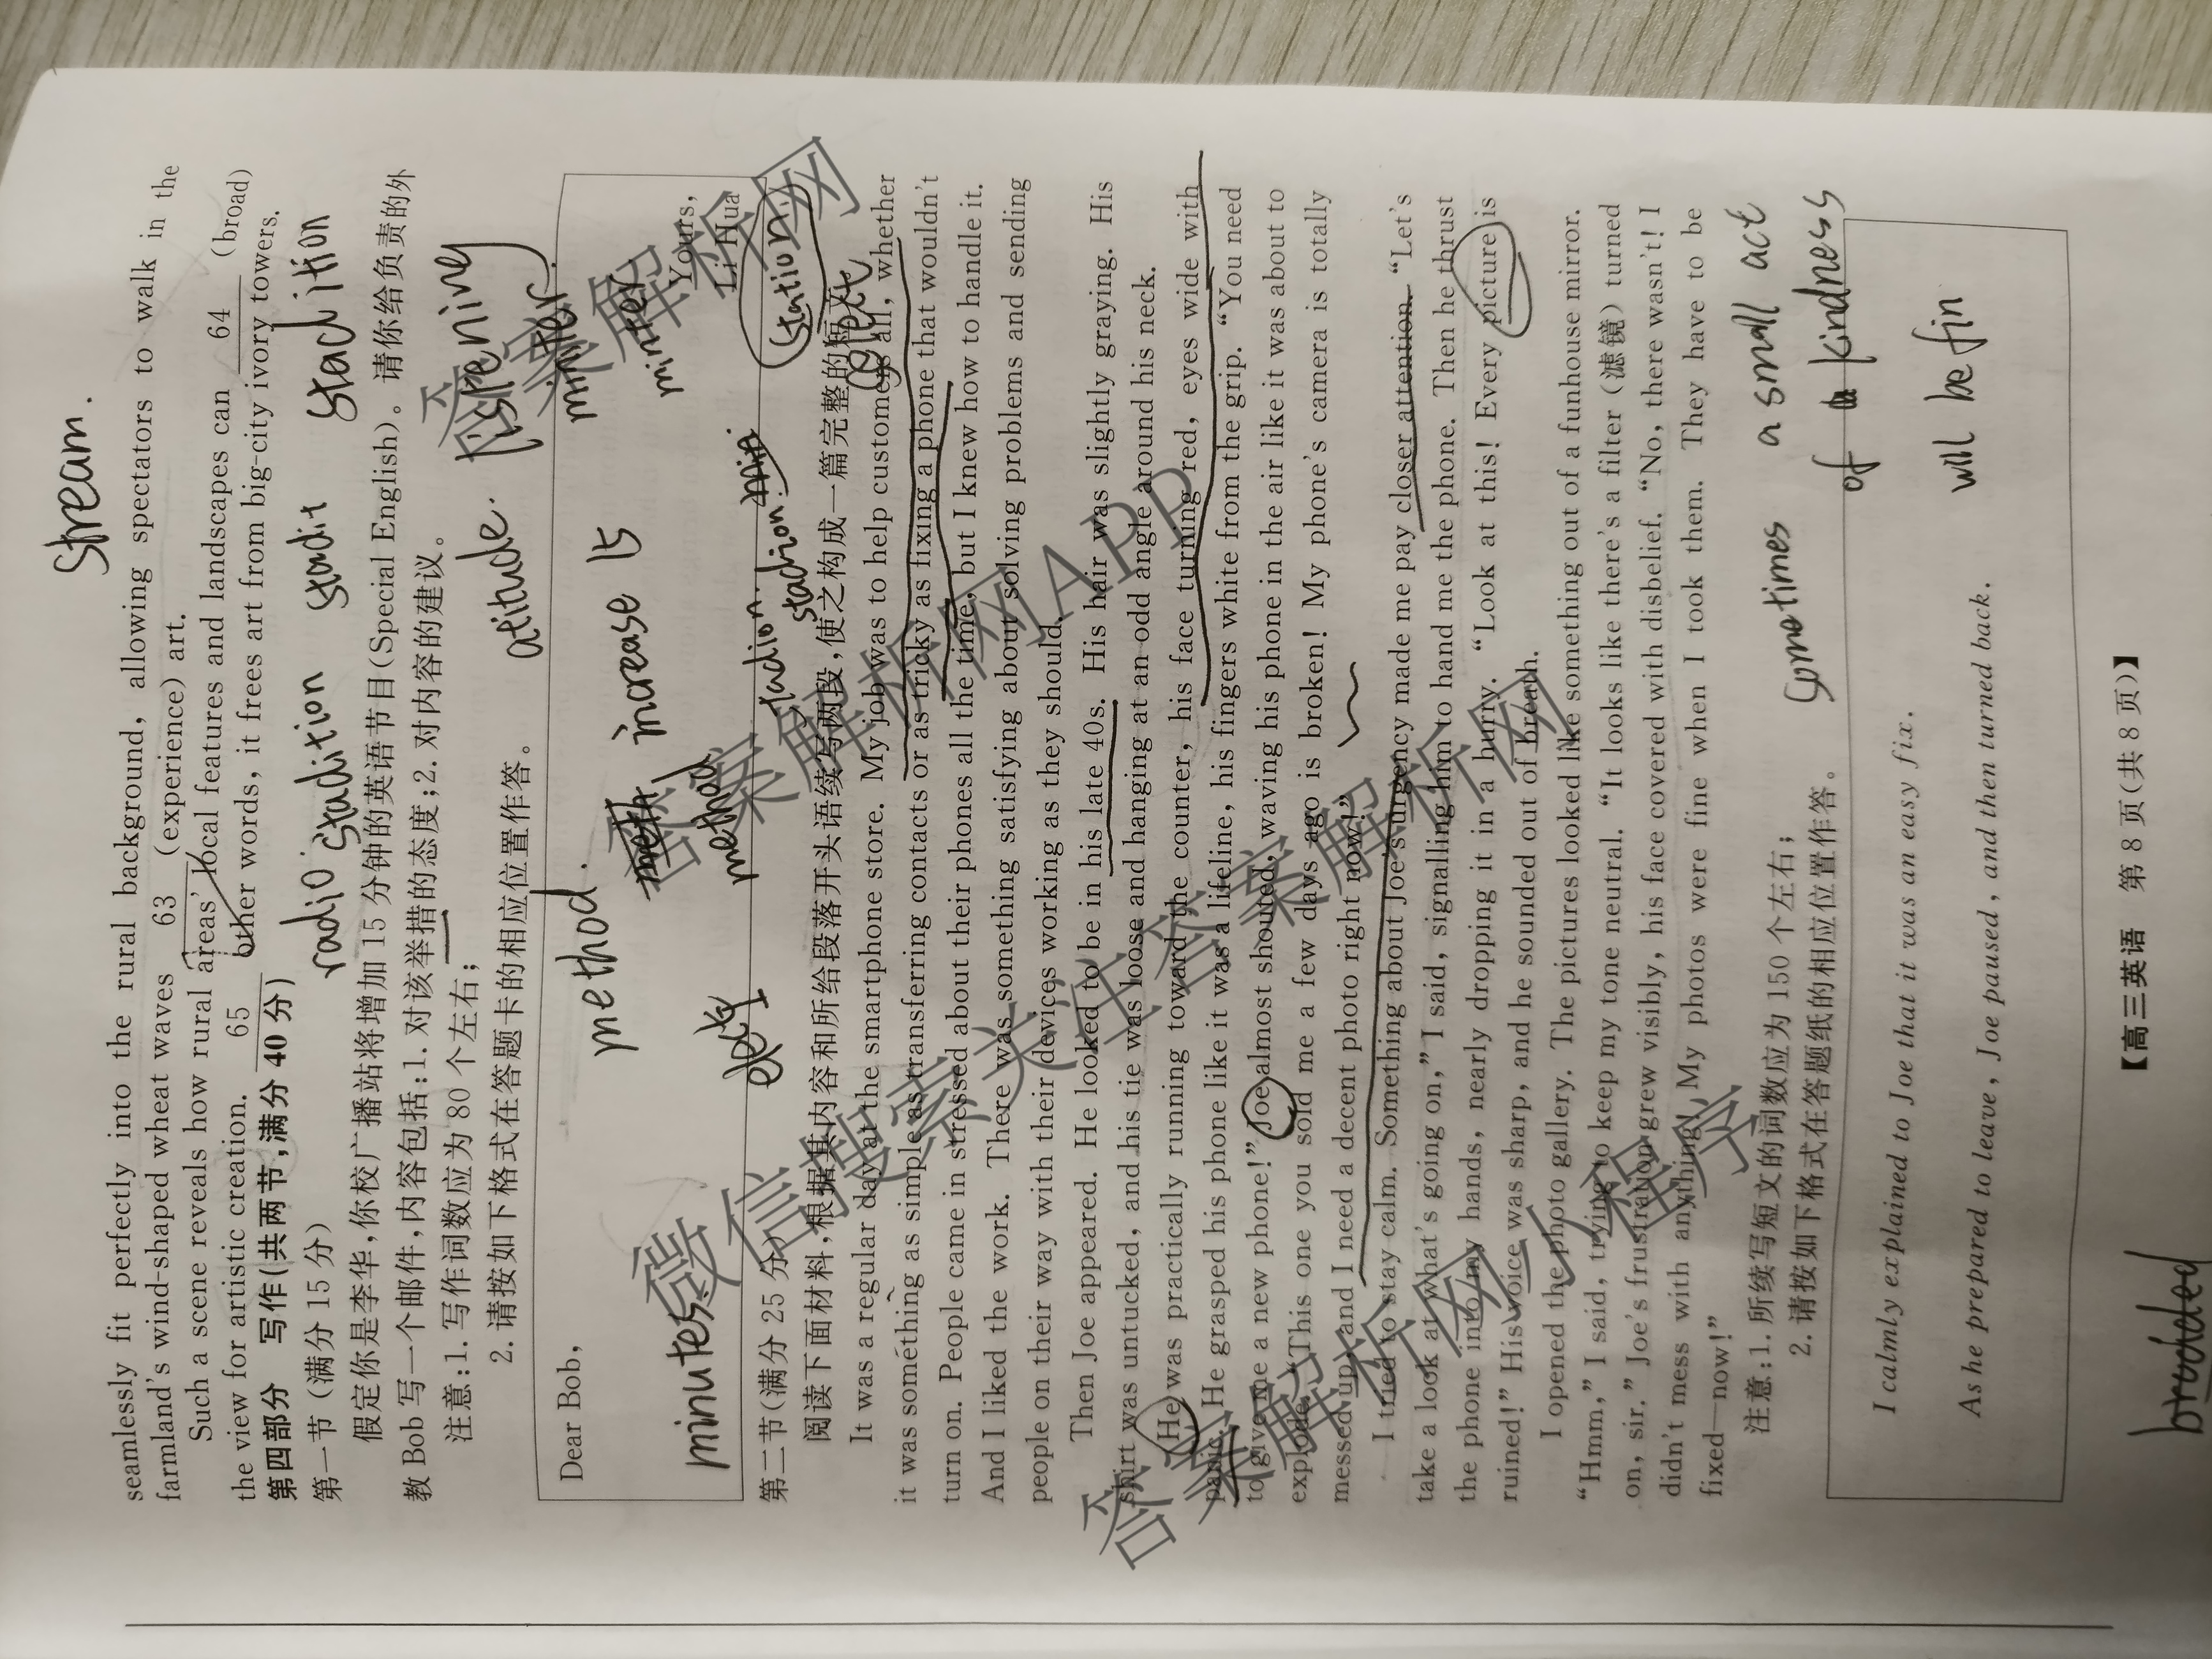 stream.
seamlessly fit perfectly into the rural background, allowing spectators to walk in the
farmland's wind-shaped wheat waves 63 (experience) art.
Such a scene reveals how rural areas' local features and landscapes can 64 (broad)
the view for artistic creation. 65 other words, it frees art from big-city ivory towers.
第四部分 写作(共两节,满分 40 分)
radio stadition stadit stadition
第一节 (满分 15 分)
假定你是李华,你校广播站将增加 15 分钟的英语节目(Special English)。请你给负责的外
教 Bob 写一个邮件,内容包括:1. 对该举措的态度;2. 对内容的建议。
atitude. listening
注意:1. 写作词数应为 80 个左右;
2. 请按如下格式在答题卡的相应位置作答。
Dear Bob,
method. minter.
increase 15 minter
minutes. method
Yours,
Li Hua
tadion. stadion. (station)
第二节(满分 25 分)
阅读下面材料,根据其内容和所给段落开头语续写两段,使之构成一篇完整的短文。
It was a regular day at the smartphone store. My job was to help customers all, whether
it was something as simple as transferring contacts or as tricky as fixing a phone that wouldn't
turn on. People came in stressed about their phones all the time, but I knew how to handle it.
And I liked the work. There was something satisfying about solving problems and sending
people on their way with their devices working as they should.
Then Joe appeared. He looked to be in his late 40s. His hair was slightly graying. His
shirt was untucked, and his tie was loose and hanging at an odd angle around his neck.
He was practically running toward the counter, his face turning red, eyes wide with
panic. He grasped his phone like it was a lifeline, his fingers white from the grip. “You need
to give me a new phone!” Joe almost shouted, waving his phone in the air like it was about to
explode. “This one you sold me a few days ago is broken! My phone's camera is totally
messed up, and I need a decent photo right now!”
I tried to stay calm. Something about Joe's urgency made me pay closer attention. “Let's
take a look at what's going on,” I said, signalling him to hand me the phone. Then he thrust
the phone into my hands, nearly dropping it in a hurry. “Look at this! Every picture is
ruined!” His voice was sharp, and he sounded out of breath.
I opened the photo gallery. The pictures looked like something out of a funhouse mirror.
“Hmm,” I said, trying to keep my tone neutral. “It looks like there's a filter (滤镜) turned
on, sir.” Joe's frustration grew visibly, his face covered with disbelief. “No, there wasn't! I
didn't mess with anything! My photos were fine when I took them. They have to be
fixed—now!”
注意:1. 所续写短文的词数应为 150 个左右;
2. 请按如下格式在答题纸的相应位置作答。
Sometimes a small act
of kindness
I calmly explained to Joe that it was an easy fix.
will be fin
As he prepared to leave, Joe paused, and then turned back.
【高三英语 第 8 页(共 8 页)】
微信搜索关注答案解析网
答案解析网APP
答案解析网
答案解析网
答案解析网